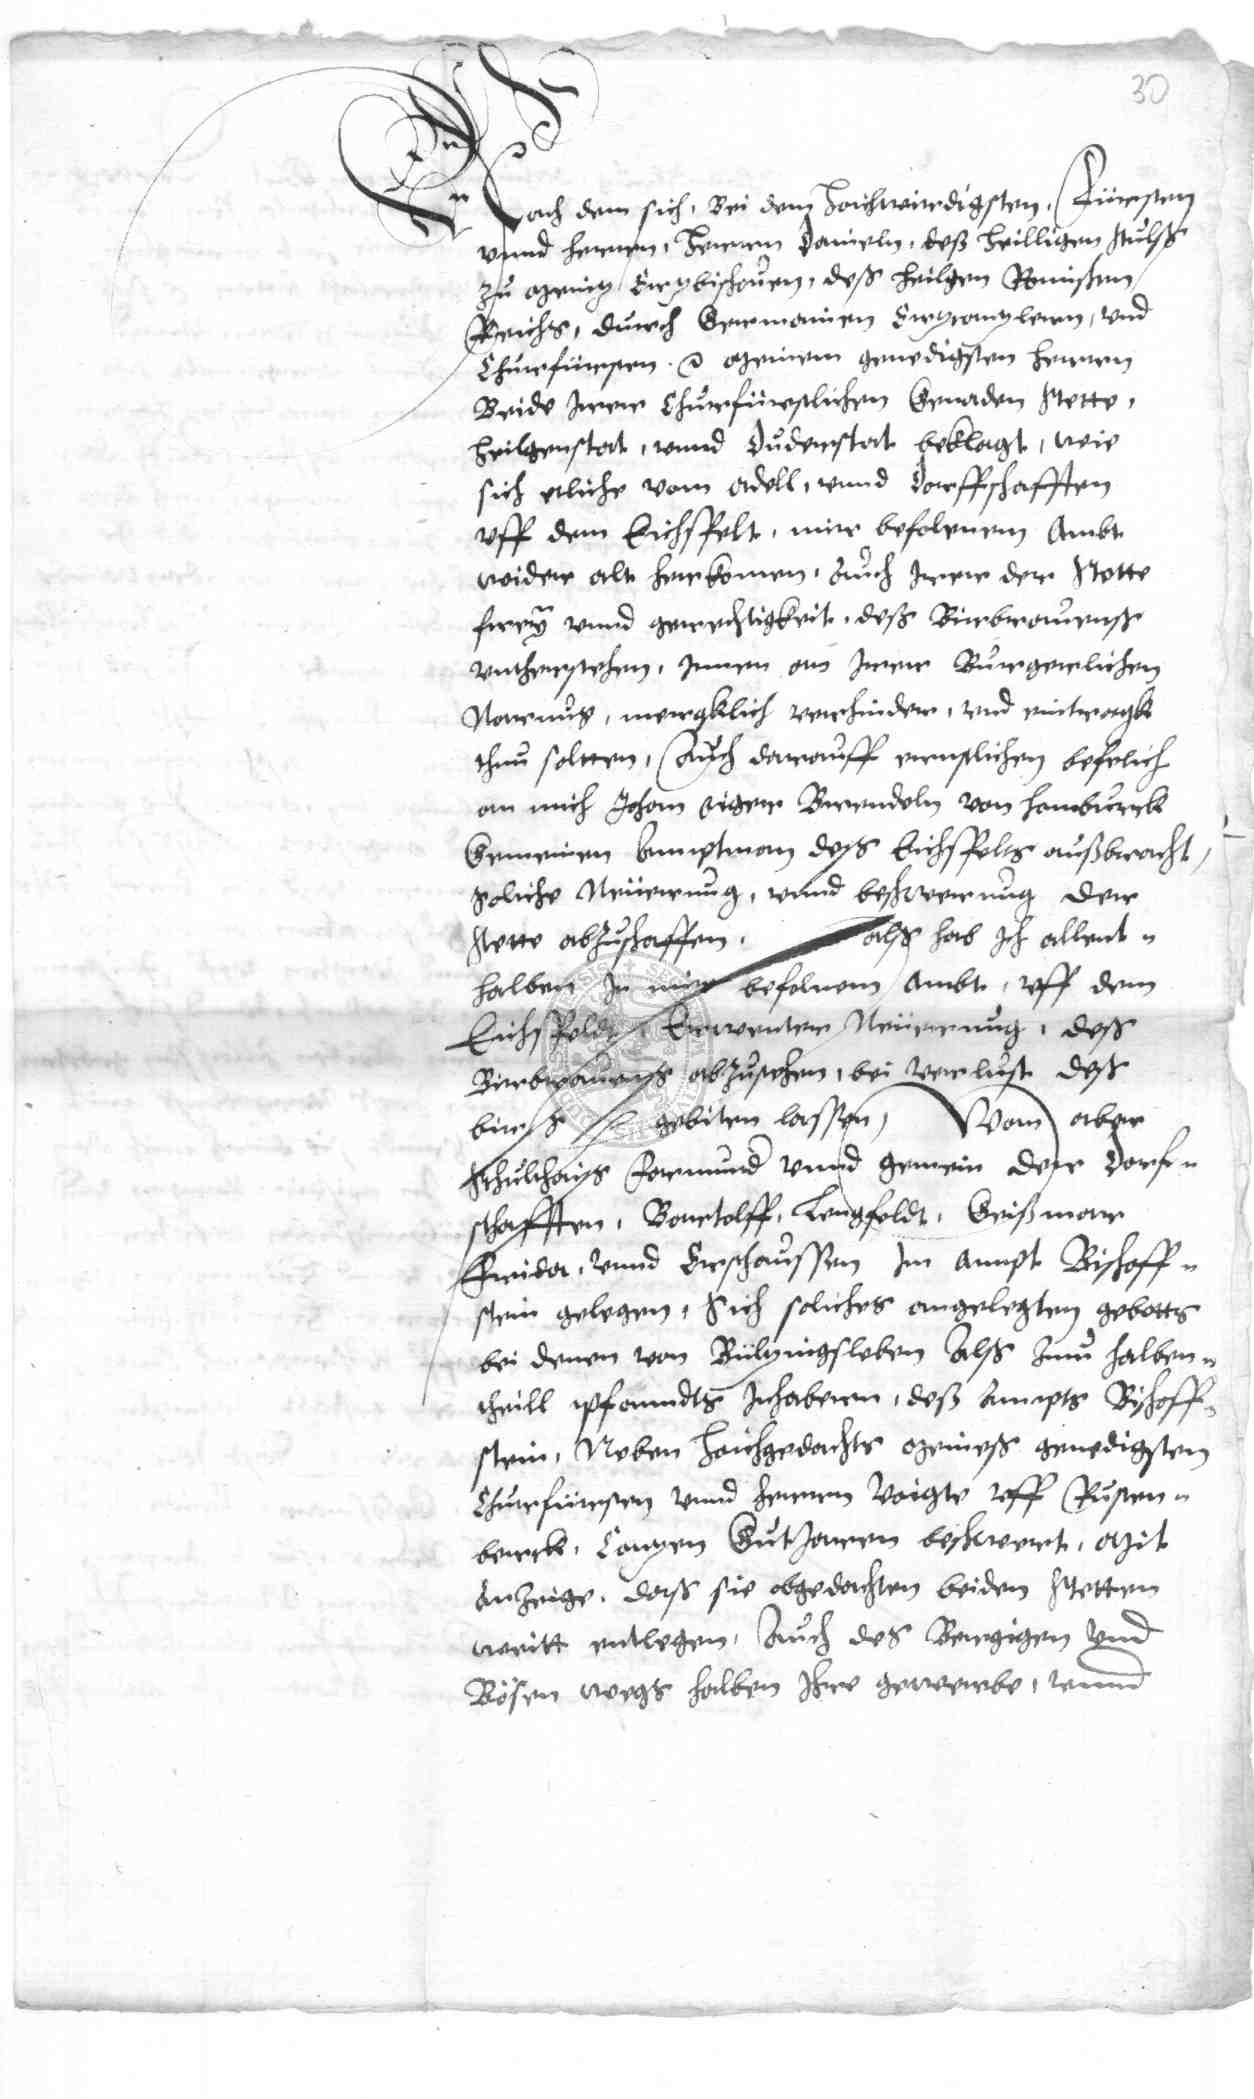 30
Nach dem sich, Bei dem Hochwirdigsten, Fürsten
vnnd herren, Herren Danieln, deß heilligen stulß
zu Meintz Ertzbischoven, deß heilgen Romischen
Reichs, durch Germanien Ertzcantzlern, vnd
Churfürsten. Meinem genedigsten herren
Beide Irer Churfürstlichen Genaden Stette,
heilgenstat, vnnd Duderstat beklagt, wie
sich etliche vom Adell, vnnd Dorffschafften
vff dem Eichsfelt, mir befolenem Ambt
wider alt herkomen, Auch Irer der Stette
frey vnnd gerechtigkeit, deß Birbrawenß
vnthersthen, Innen an Irer Burgerlichen
Narung, mercklich verhinder, vnd eintragk
thun soltten, Auch darauff ernstlichen befelich
an mich Johan Oiger Brendeln von Hamburck
Gemeinen Amptman deß Eichsfelts außbracht,
soliche Neüerung, vnnd beschwerung der
Stette abzuschaffen. alß hab Ich allent
halben In mir befolnem Ambt, vff dem
Eichsfeldt, Erwenter Neüerung, deß
Birbrawenß abzustehen, bei verlust deß
birß gebiten lassen, Wan aber
Schulthaiß Formund vnnd gemein der Dorf
schafften, Bartolff, Lengfeldt, Geißmar
Frida, vnnd Erschaussen Im Ampt Bischoff
stein gelegen, Sich soliches angelegten gebotts
bei denen von Bültzingsleben Alß zum halben
theill pfanndts Inhabern, deß Ampts Bischoff
stein, Neben Hochgedachts Meineß genedigsten
Churfürsten vnnd herren Voigte vff Rusten
berck, Contzen Gutjaren beschwert, Mit
Anzeige, daß sie obgedachten beiden Stetten
weitt entlegen, Auch des Bergigen vnd
Bösen wegs halben Ihre gewerbe, vnnd